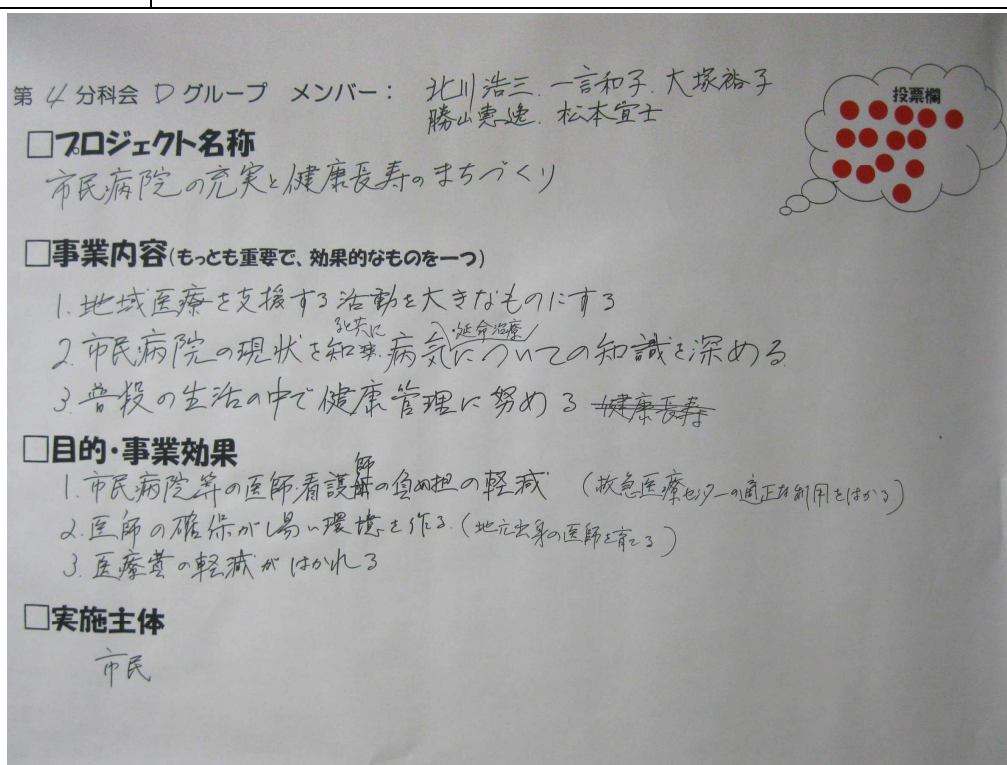 第 4 分科会 D グループ メンバー： 北川 浩三、一言和子、大塚裕子
勝山 恵逸、松本宜士
投票欄
□プロジェクト名称
市民病院の充実と健康長寿のまちづくり
□事業内容(もっとも重要で、効果的なものを一つ)
1. 地域医療を支援する活動を大きなものにする
ると共に ・延命治療
2. 市民病院の現状を知 病気についての知識を深める
3. 普段の生活の中で健康管理に努める 健康長寿
□目的・事業効果
1. 市民病院等の医師・看護師の負担の軽減 (救急医療センターの適正な利用をはかる)
2. 医師の確保がし易い環境を作る (地元出身の医師を育てる)
3. 医療費の軽減がはかれる
□実施主体
市民